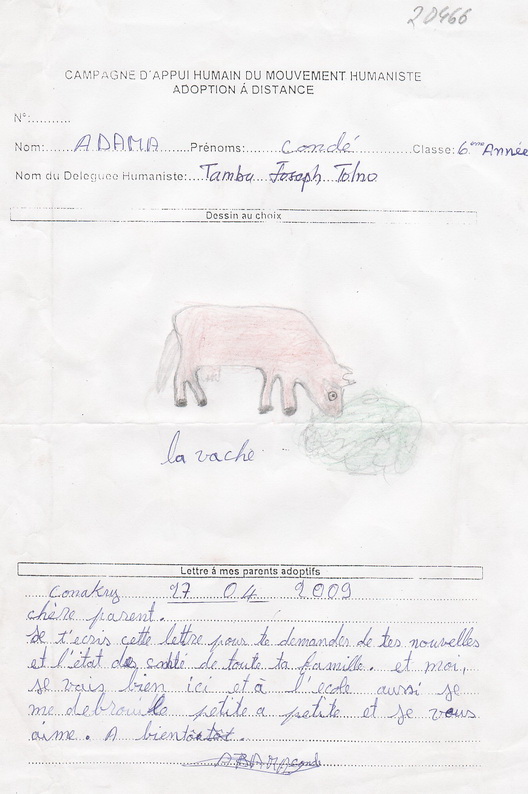 20466
CAMPAGNE D'APPUI HUMAIN DU MOUVEMENT HUMANISTE
ADOPTION Á DISTANCE
N°:..........
Nom: ADAMA Prénoms: Condé Classe: 6ème Année
Nom du Deleguee Humaniste: Tamba Joseph Tolno
Dessin au choix
la vache
Lettre á mes parents adoptifs
Conakry 27 04 2009
chère parent.
Je t'ecris cette lettre pour te demander de tes nouvelles
et l'état de santé de toute ta famille. et moi,
je vais bien ici et à l'école aussi je
me debrouille petite a petite et je vous
aime. A bientôt.